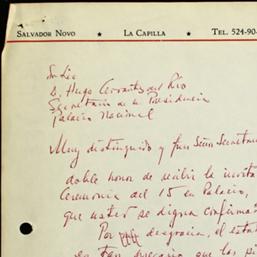 SALVADOR NOVO ★ LA CAPILLA ★ TEL. 524-90
Sr Lic
D. Hugo Cervantes del Río
Secretario de la Presidencia
Palacio Nacional
Muy distinguido y fino Señor Secretario
doble honor de recibir la invita
Ceremonia del 15 en Palacio,
que usted se digna confirma
Por desgracia, el esta
es tan precario que los